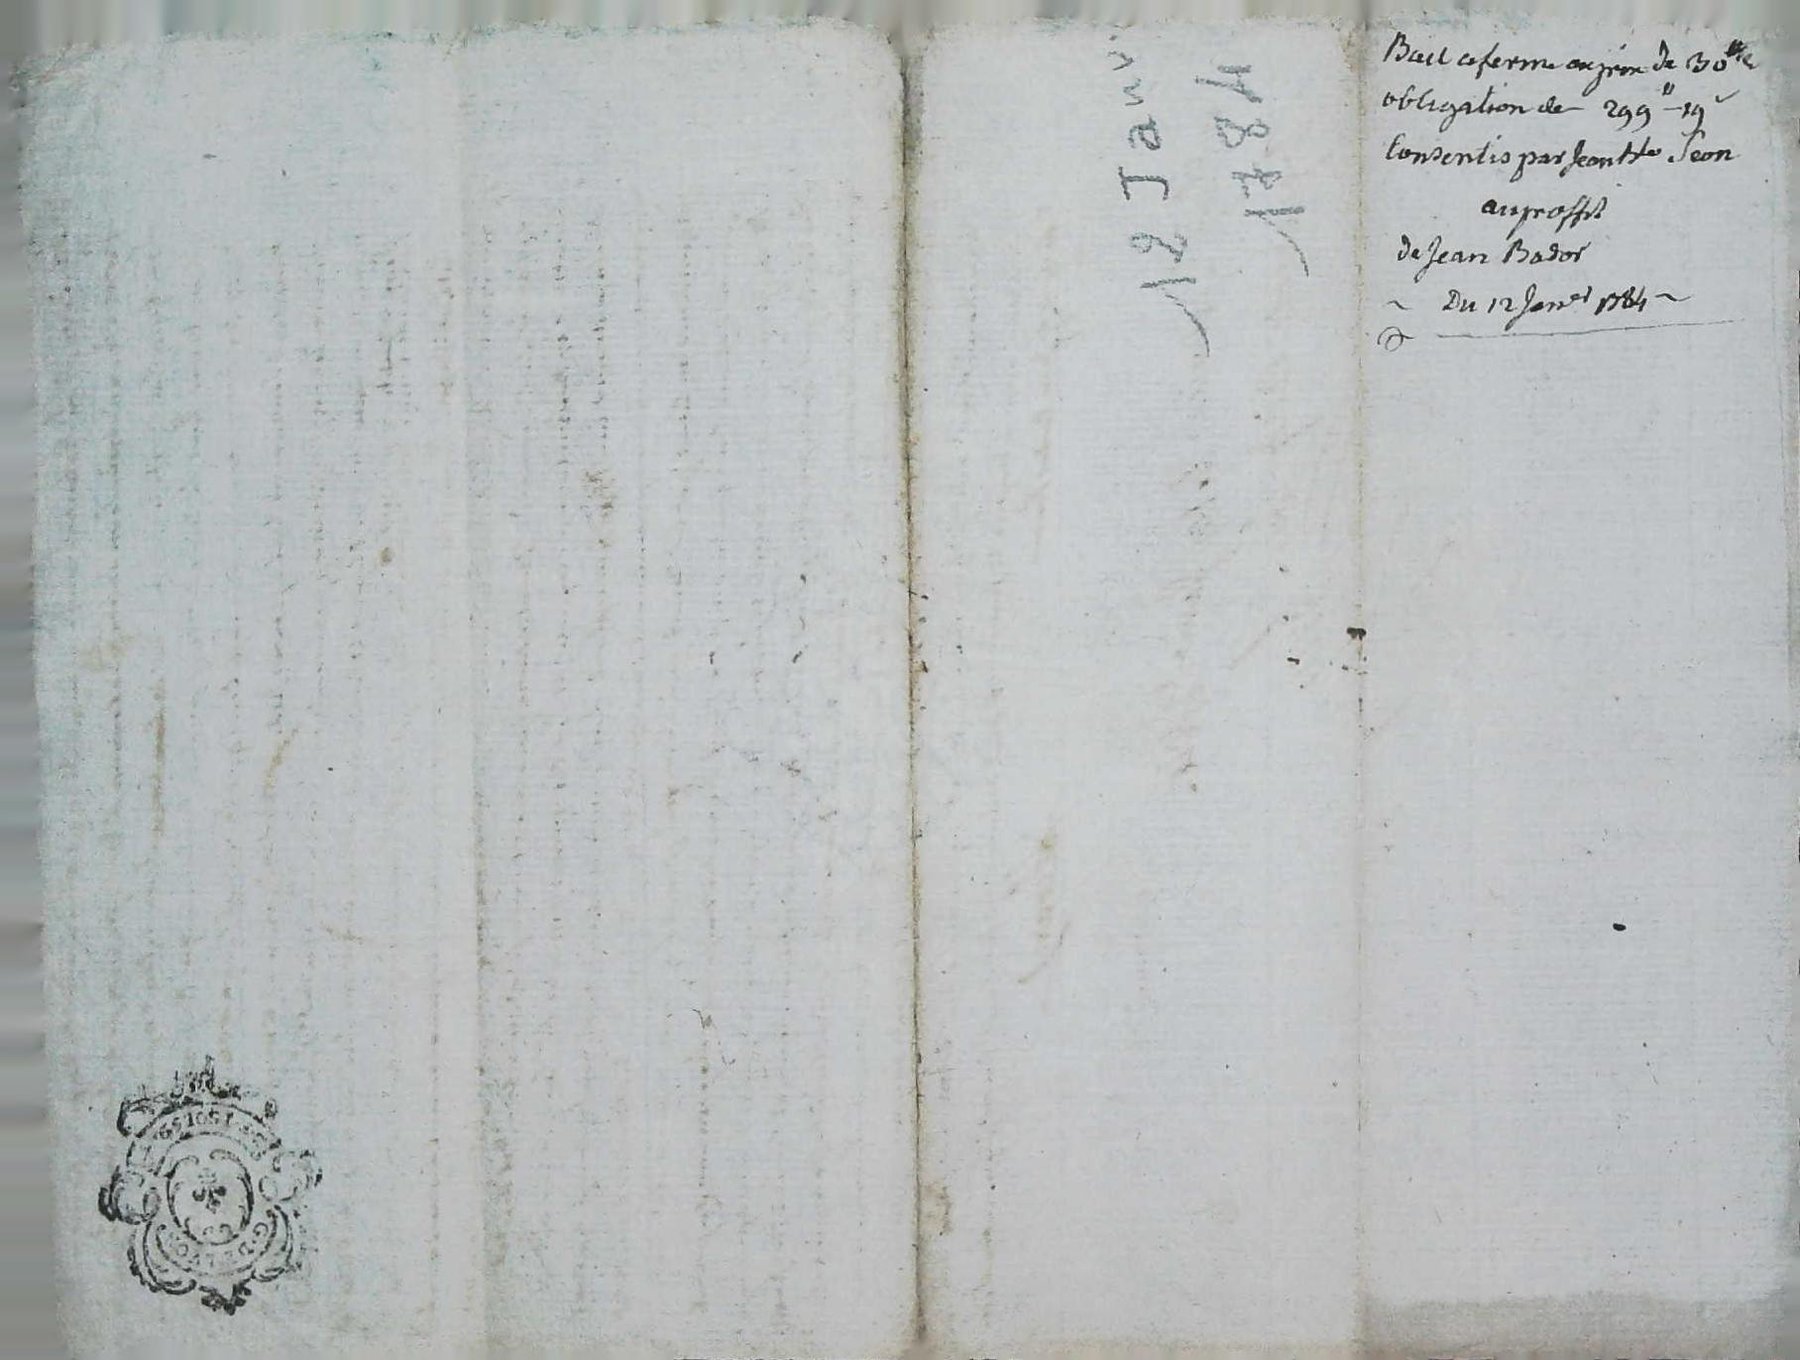 Bail a ferme au prix de 30#
obligation de 299# 19s
Consentis par Jean Seon
au proffit
de Jean Bador
~ Du 12 Janer 1784 ~
12 Janv
1784